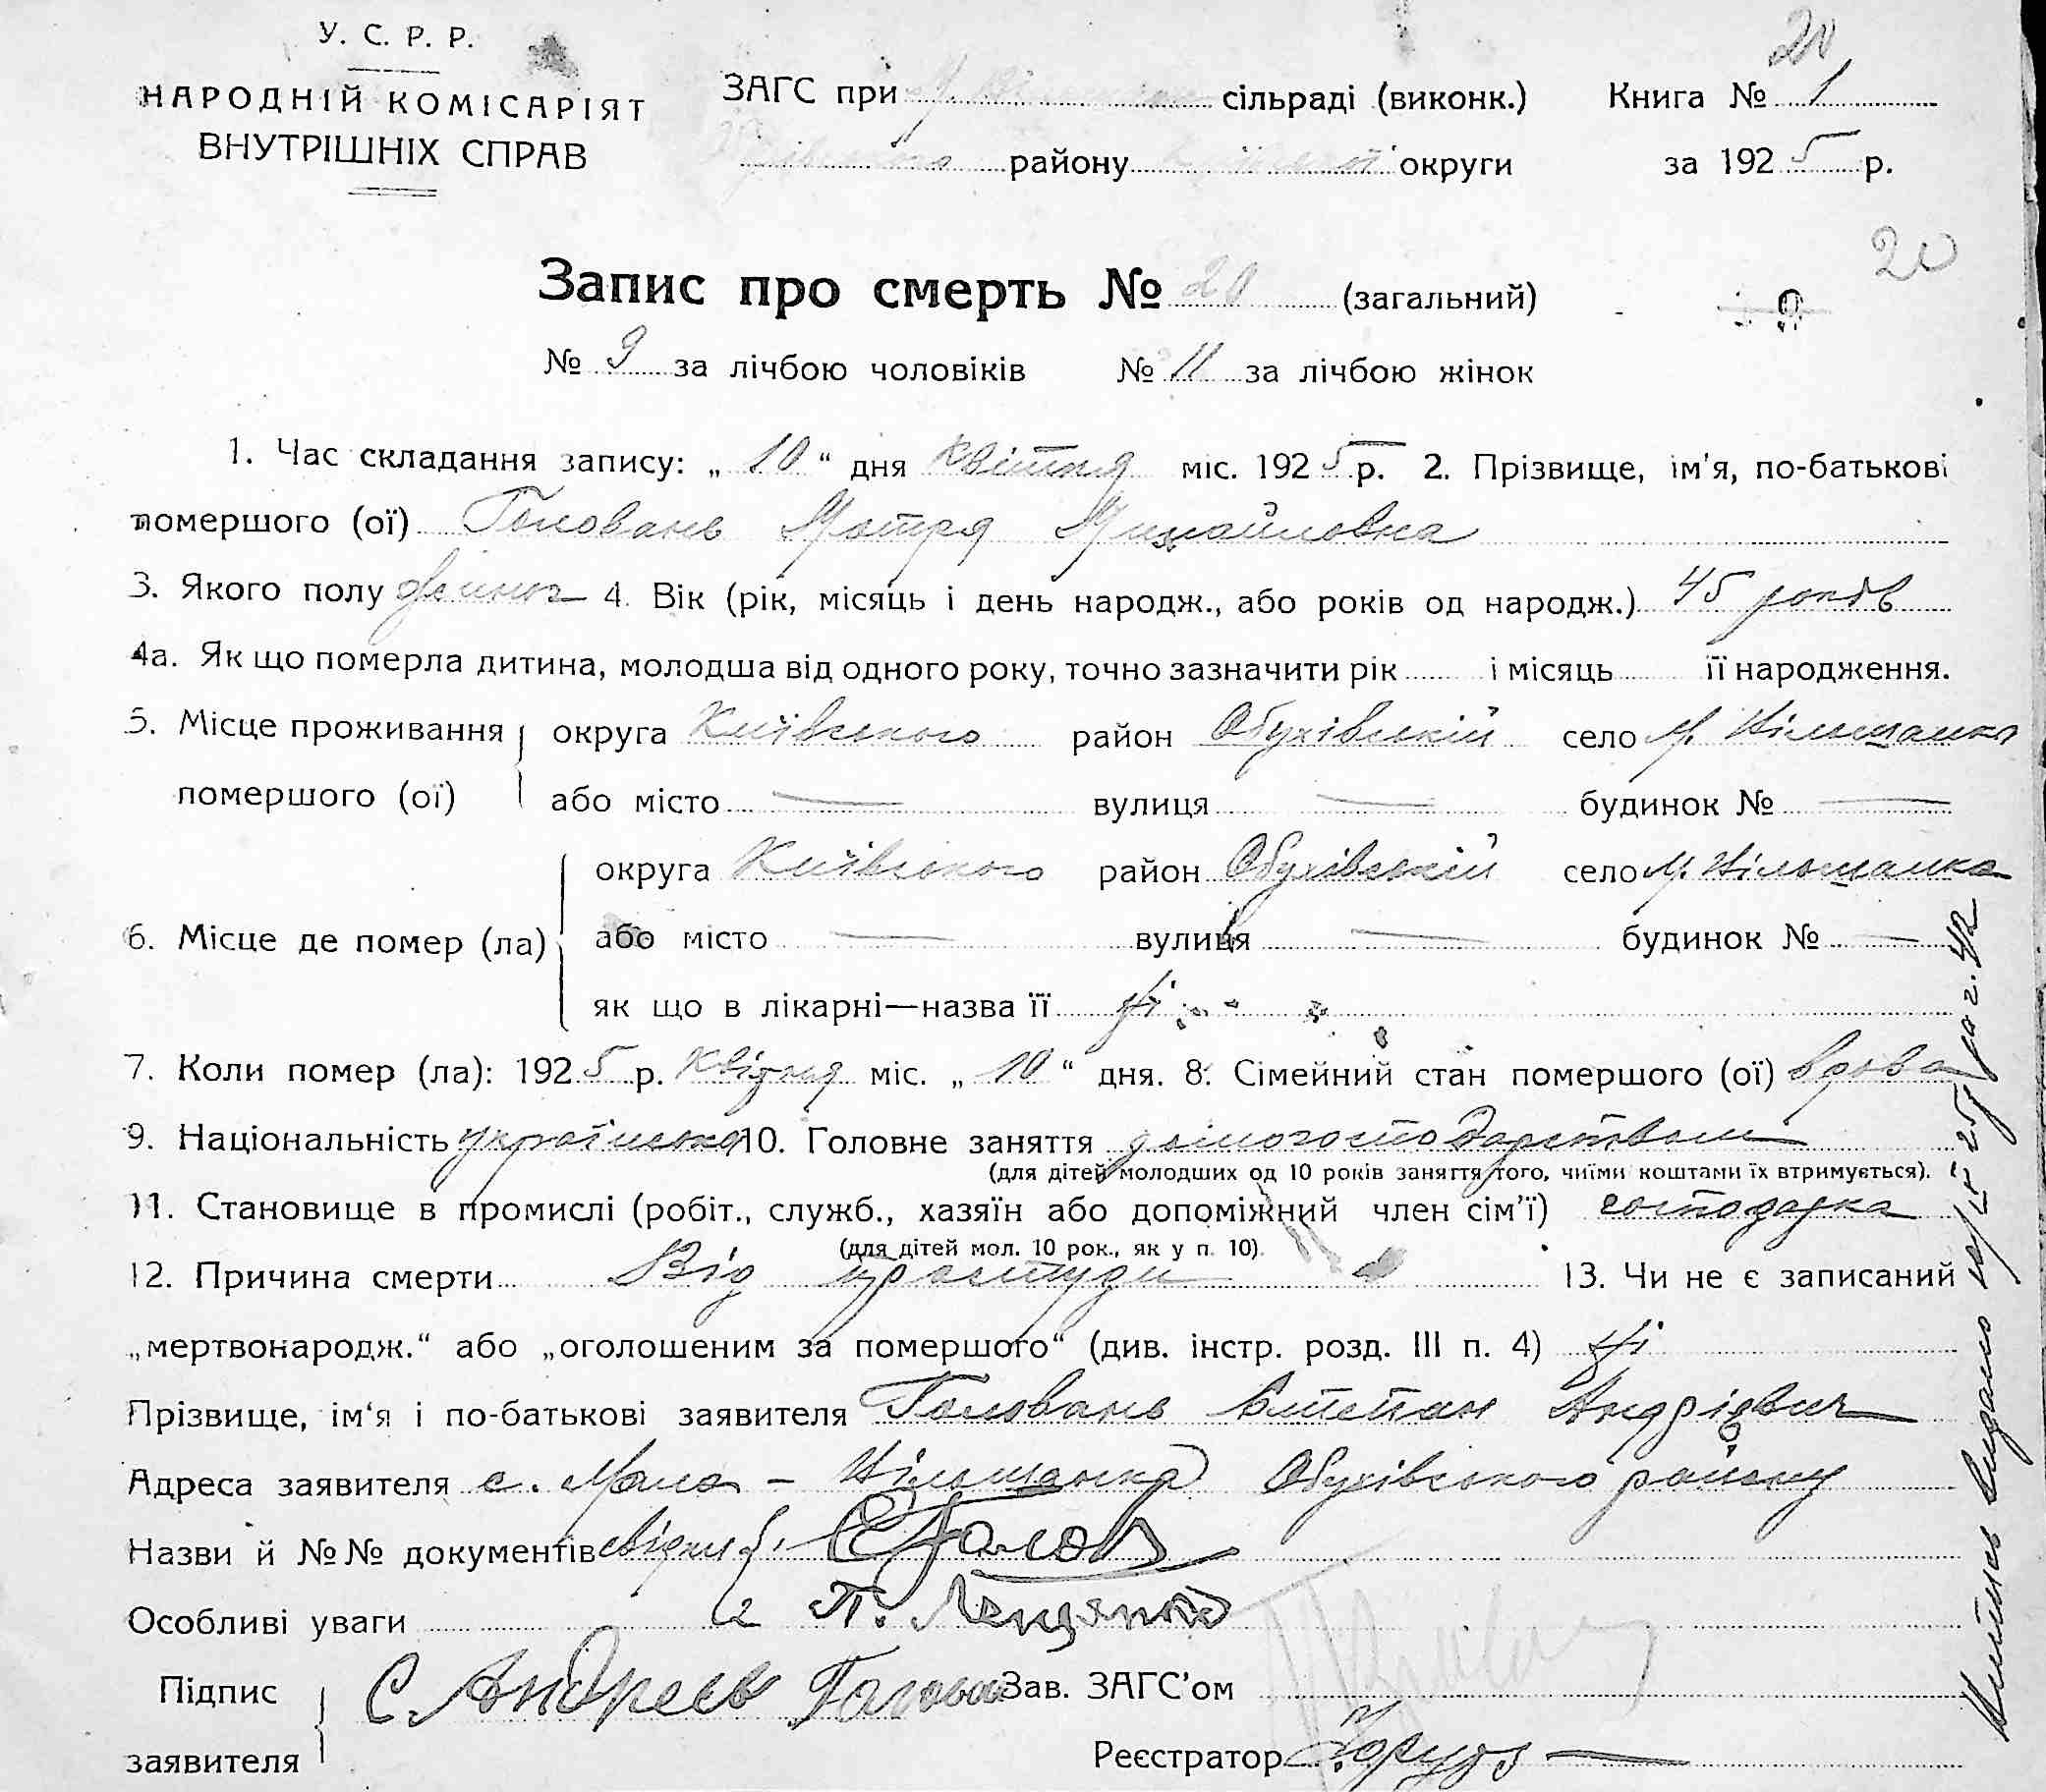 У. С. Р. Р.
НАРОДНІЙ КОМІСАРІЯТ
ВНУТРІШНІХ СПРАВ
ЗАГС при сільраді (виконк.)
району округи
20
Книга № 1
за 1925 р.
20
Запис про смерть № 20 (загальний)
№ 9 за лічбою чоловіків № 11 за лічбою жінок
1. Час складання запису: „ 10 “ дня квітня міс. 1925 р. 2. Прізвище, ім'я, по-батькові
помершого (ої) Головань Мотря Михайловна
3. Якого полу 4. Вік (рік, місяць і день народж., або років од народж.) 45 років
4а. Як що померла дитина, молодша від одного року, точно зазначити рік і місяць її народження.
5. Місце проживання округа Київського район Обухівський село М. Вільшанка
помершого (ої) або місто — вулиця — будинок № —
округа Київського район Обухівський село М. Вільшанка
6. Місце де помер (ла) або місто — вулиця — будинок № —
як що в лікарні—назва її ні
7. Коли помер (ла): 1925 р. квітня міс. „ 10 “ дня. 8. Сімейний стан помершого (ої) вдова
9. Національність українська 10. Головне заняття
(для дітей молодших од 10 років заняття того, чиїми коштами їх втримується).
11. Становище в промислі (робіт., служб., хазяїн або допоміжний член сім'ї) господарка
(для дітей мол. 10 рок., як у п. 10).
12. Причина смерти Від простуди 13. Чи не є записаний
„мертвонародж.“ або „оголошеним за помершого“ (див. інстр. розд. III п. 4) ні
Прізвище, ім'я і по-батькові заявителя Головань Степан Андрієвич
Адреса заявителя с. Мала - Вільшанка Обухівського району
Назви й №№ документів свідки
Особливі уваги
Підпис С. Андреев Голован Зав. ЗАГС'ом
заявителя Реєстратор